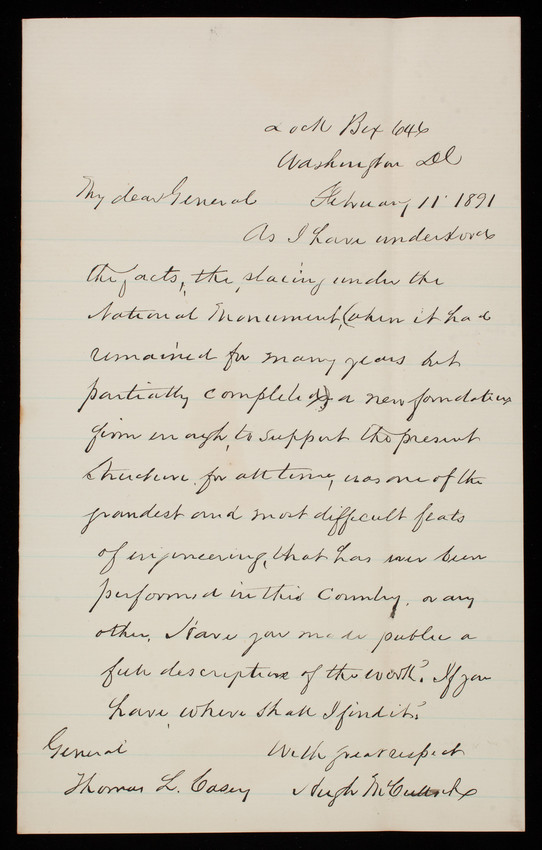 Lock Box 646
Washington DC
My dear General February 11 1891
As I have understood
the facts, the placing under the
National Monument, (when it had
remained for many years but
partially completed) a new foundation
firm enough, to support the present
structure for all time, was one of the
grandest and most difficult feats
of engineering, that has ever been
performed in this Country, or any
other. Have you made public a
full description of the work? If you
have, where shall I find it?
General With great respect
Thomas L. Casey Hugh McCulloch